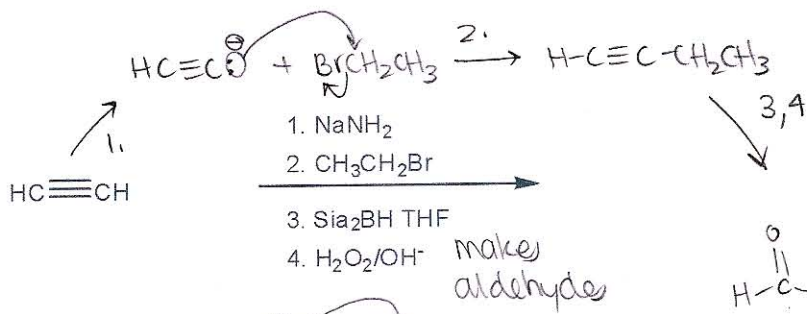 HC≡C:⊖ + BrCH₂CH₃ 2. → H-C≡C-CH₂CH₃
1.
3,4
HC≡CH
1. NaNH₂
2. CH₃CH₂Br
3. Sia₂BH THF
4. H₂O₂/OH⁻
makes
aldehydes
O
H-C-